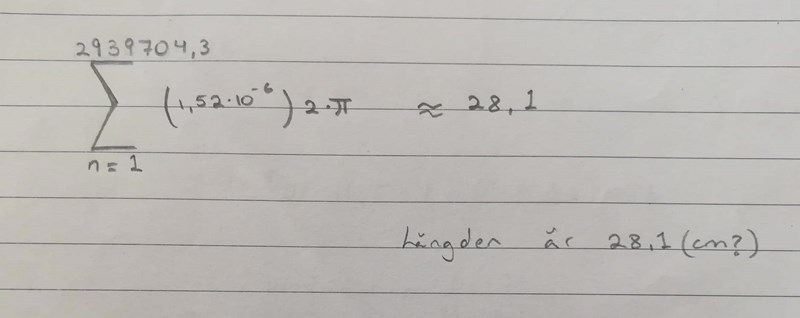 2939704,3
∑ (1,52·10⁻⁶) 2·π ≈ 28,1
n = 1
Längden är 28,1 (cm?)